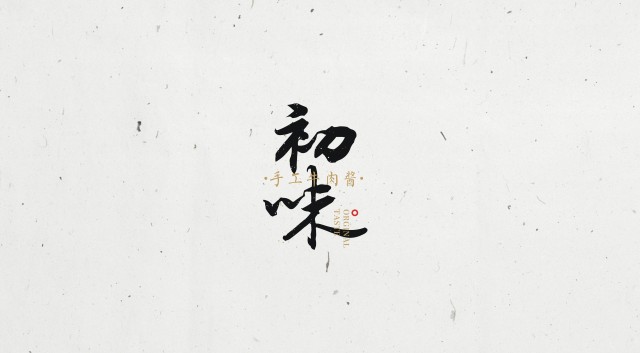 初
·手工牛肉酱·
味
ORGINAL
TASTE